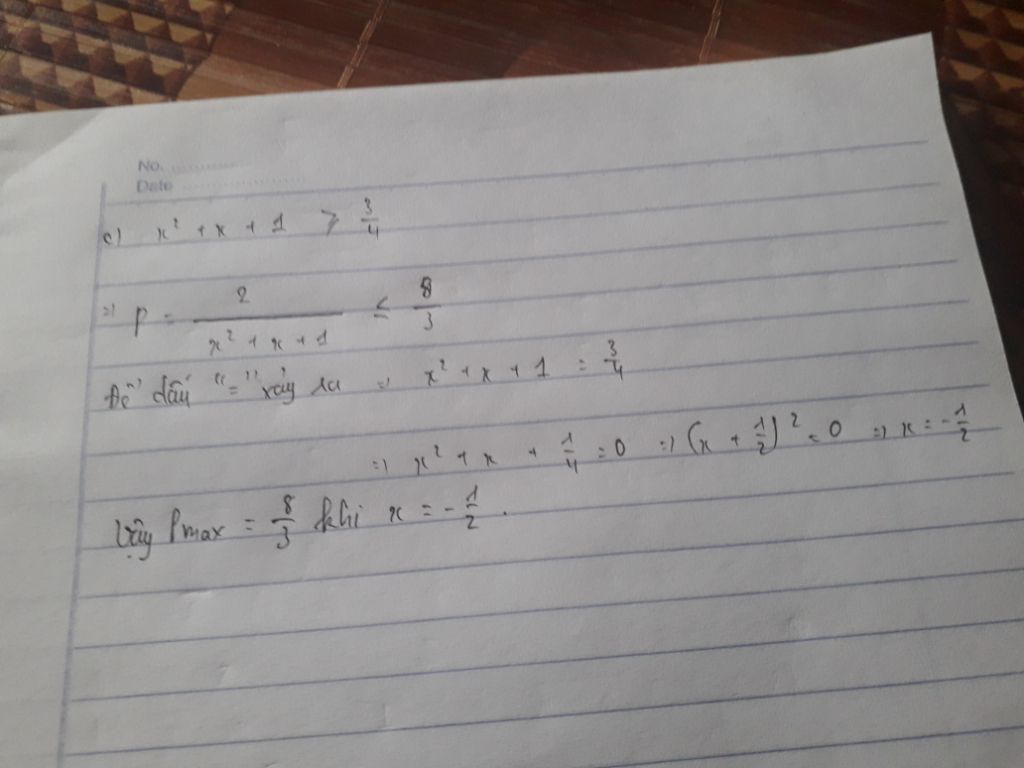 No. ............
Date ....................
c) x² + x + 1 ≥ 3/4
=) P = 2/(x² + x + 1) ≤ 8/3
Để dấu "=" xảy ra =) x² + x + 1 = 3/4
=) x² + x + 1/4 = 0 =) (x + 1/2)² = 0 =) x = -1/2
Vậy Pmax = 8/3 khi x = -1/2.